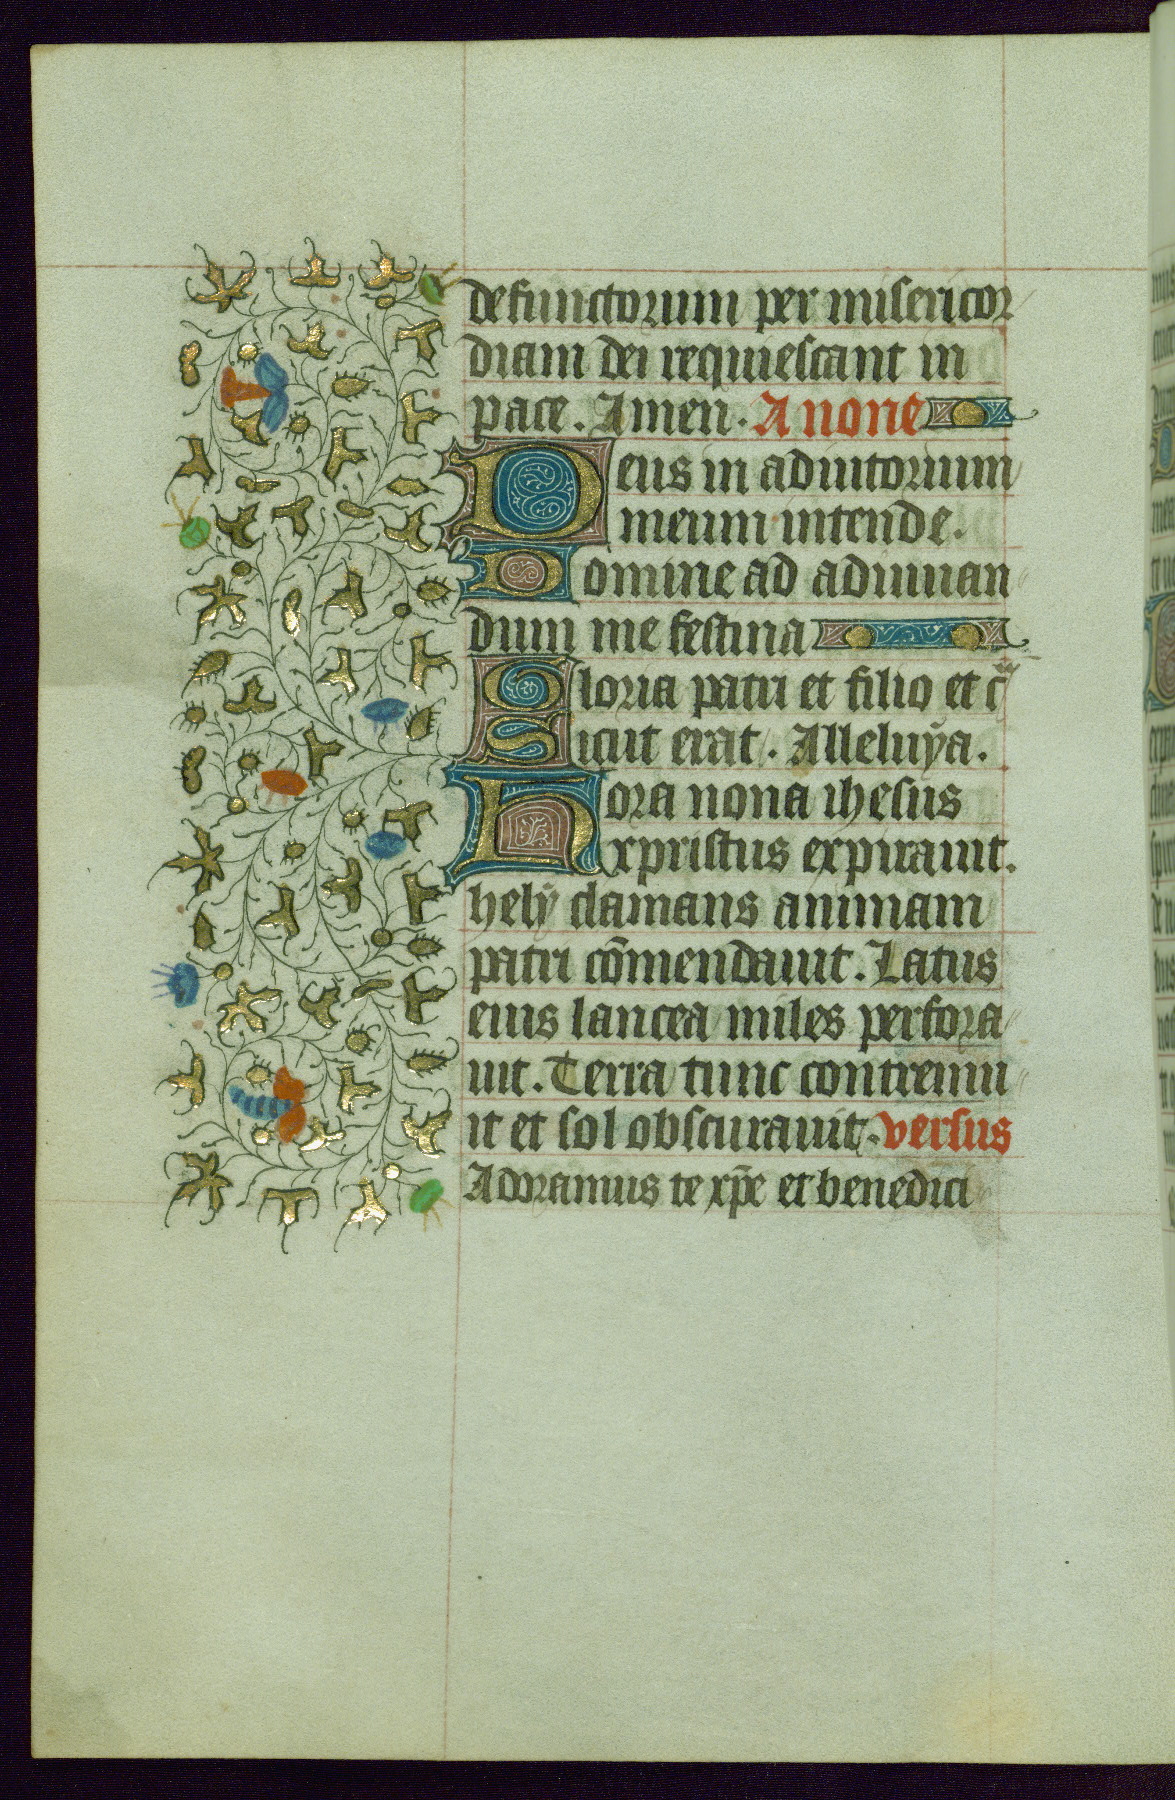 defunctorum per misericor
diam dei requiescant in
pace. Amen. A none
Deus in adiutorium
meum intende.
Domine ad adiuuan
dum me festina
Gloria patri et filio et c̃
Sicut erat. Alleluẏa.
Hora nona ihesus
xpristus expirauit.
helẏ clamans animam
patri cõmendauit. Latus
eius lancea miles perfora
uit. Terra tunc contremu
it et sol obscurauit. versus
Adoramus te xp̃e et benedici